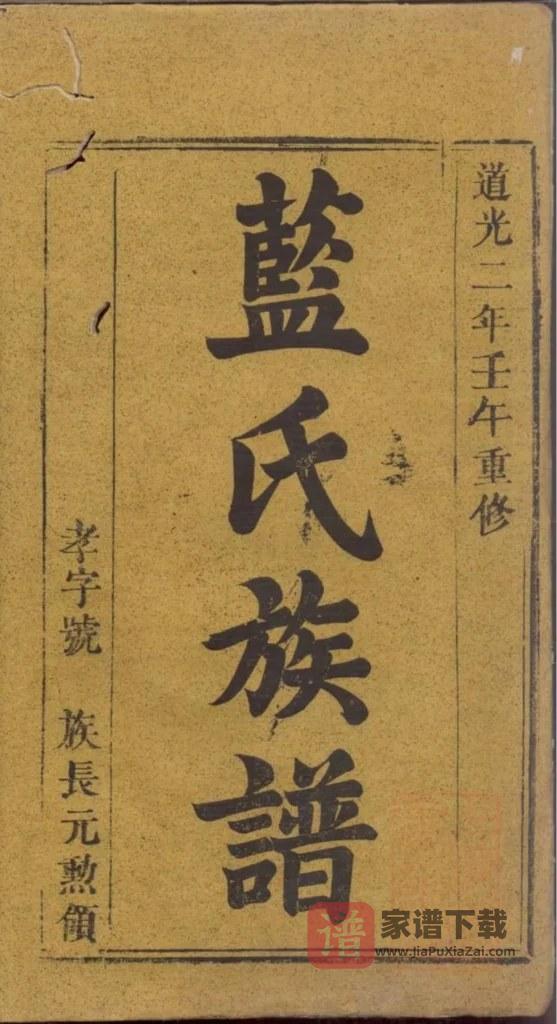 道光二年壬午重修
藍氏族譜
孝字號 族長元勲領
谱 家谱下载
www.JiaPuXiaZai.com